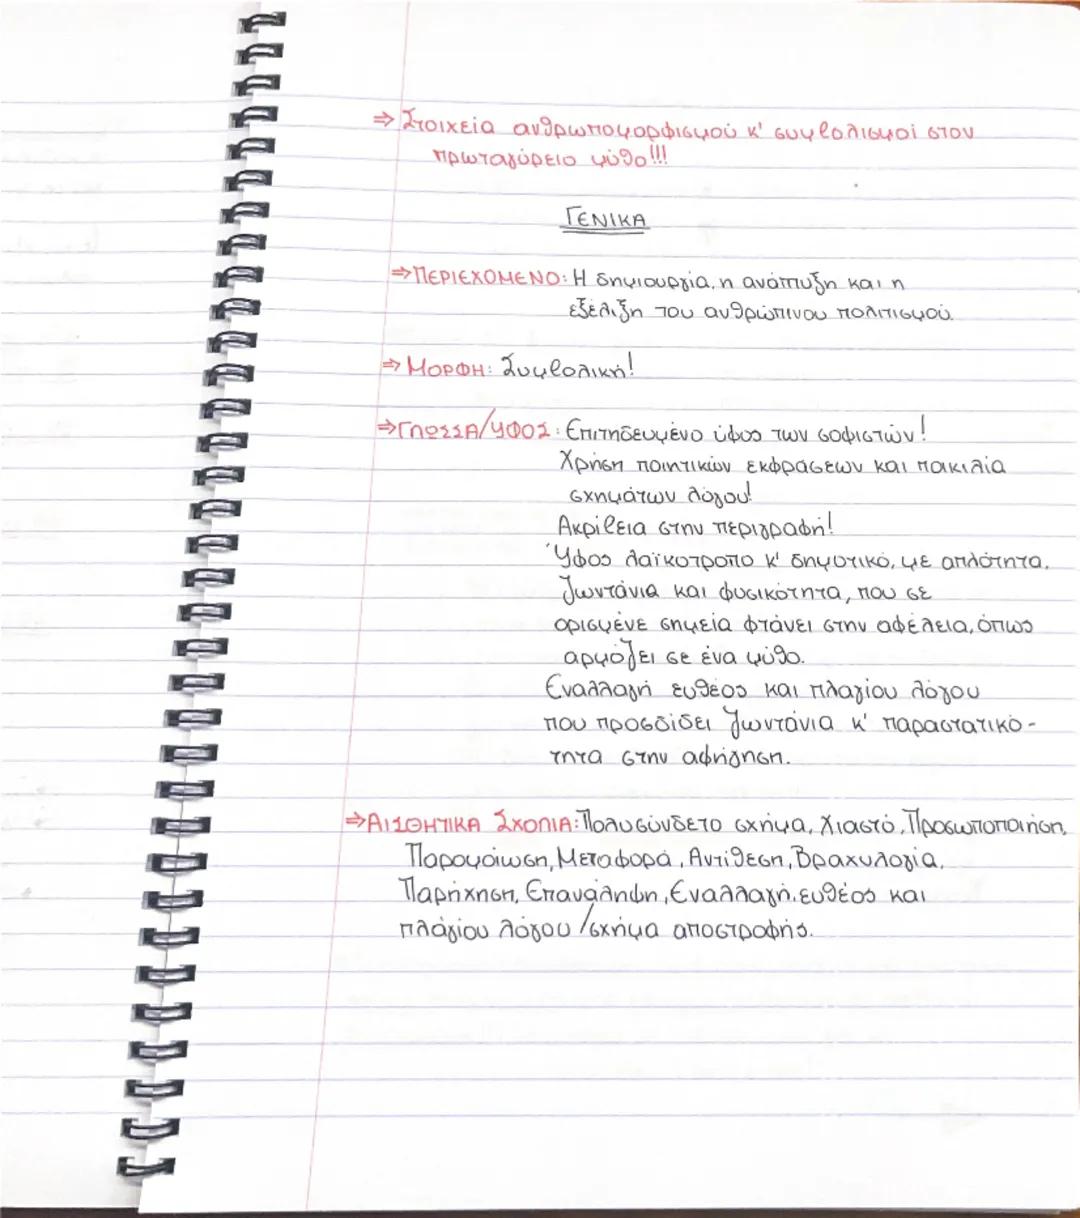 ⇒ Στοιχεία ανθρωπομορφισμού κ' συμβολισμοί στον
πρωταγόρειο μύθο!!!
ΓΕΝΙΚΑ
⇒ΠΕΡΙΕΧΟΜΕΝΟ: Η δημιουργία, η ανάπτυξη και η
εξέλιξη του ανθρώπινου πολιτισμού.
⇒ ΜΟΡΦΗ: Συμβολική!
⇒ΓΛΩΣΣΑ/ΥΦΟΣ: Επιτηδευμένο ύφος των σοφιστών!
Χρήση ποιητικών εκφράσεων και ποικιλία
σχημάτων λόγου!
Ακρίβεια στην περιγραφή!
Ύφος λαϊκότροπο κ' δημοτικό, με απλότητα.
Ζωντάνια και φυσικότητα, που σε
ορισμένε σημεία φτάνει στην αφέλεια, όπως
αρμόζει σε ένα μύθο.
Εναλλαγή ευθέος και πλαγίου λόγου
που προσδίδει ζωντάνια κ' παραστατικό-
τητα στην αφήγηση.
⇒ΑΙΣΘΗΤΙΚΑ ΣΧΟΛΙΑ: Πολυσύνδετο σχήμα, Χιαστό, Προσωποποιήση,
Παρομοίωση, Μεταφορά, Αντίθεση, Βραχυλογία,
Παρήχηση, Επανάληψη, Εναλλαγή ευθέος και
πλάγιου λόγου/σχήμα αποστροφής.